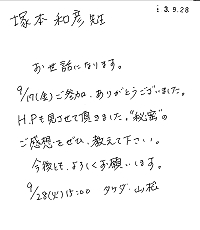 3.9.28
塚本和彦先生
お世話になります。
9/17(金)ご参加、ありがとうございました。
H.Pも見させて頂きました。"秘密"の
ご感想をぜひ、教えて下さい。
今後とも、よろしくお願いします。
9/28(火)15:00 タケダ・山松